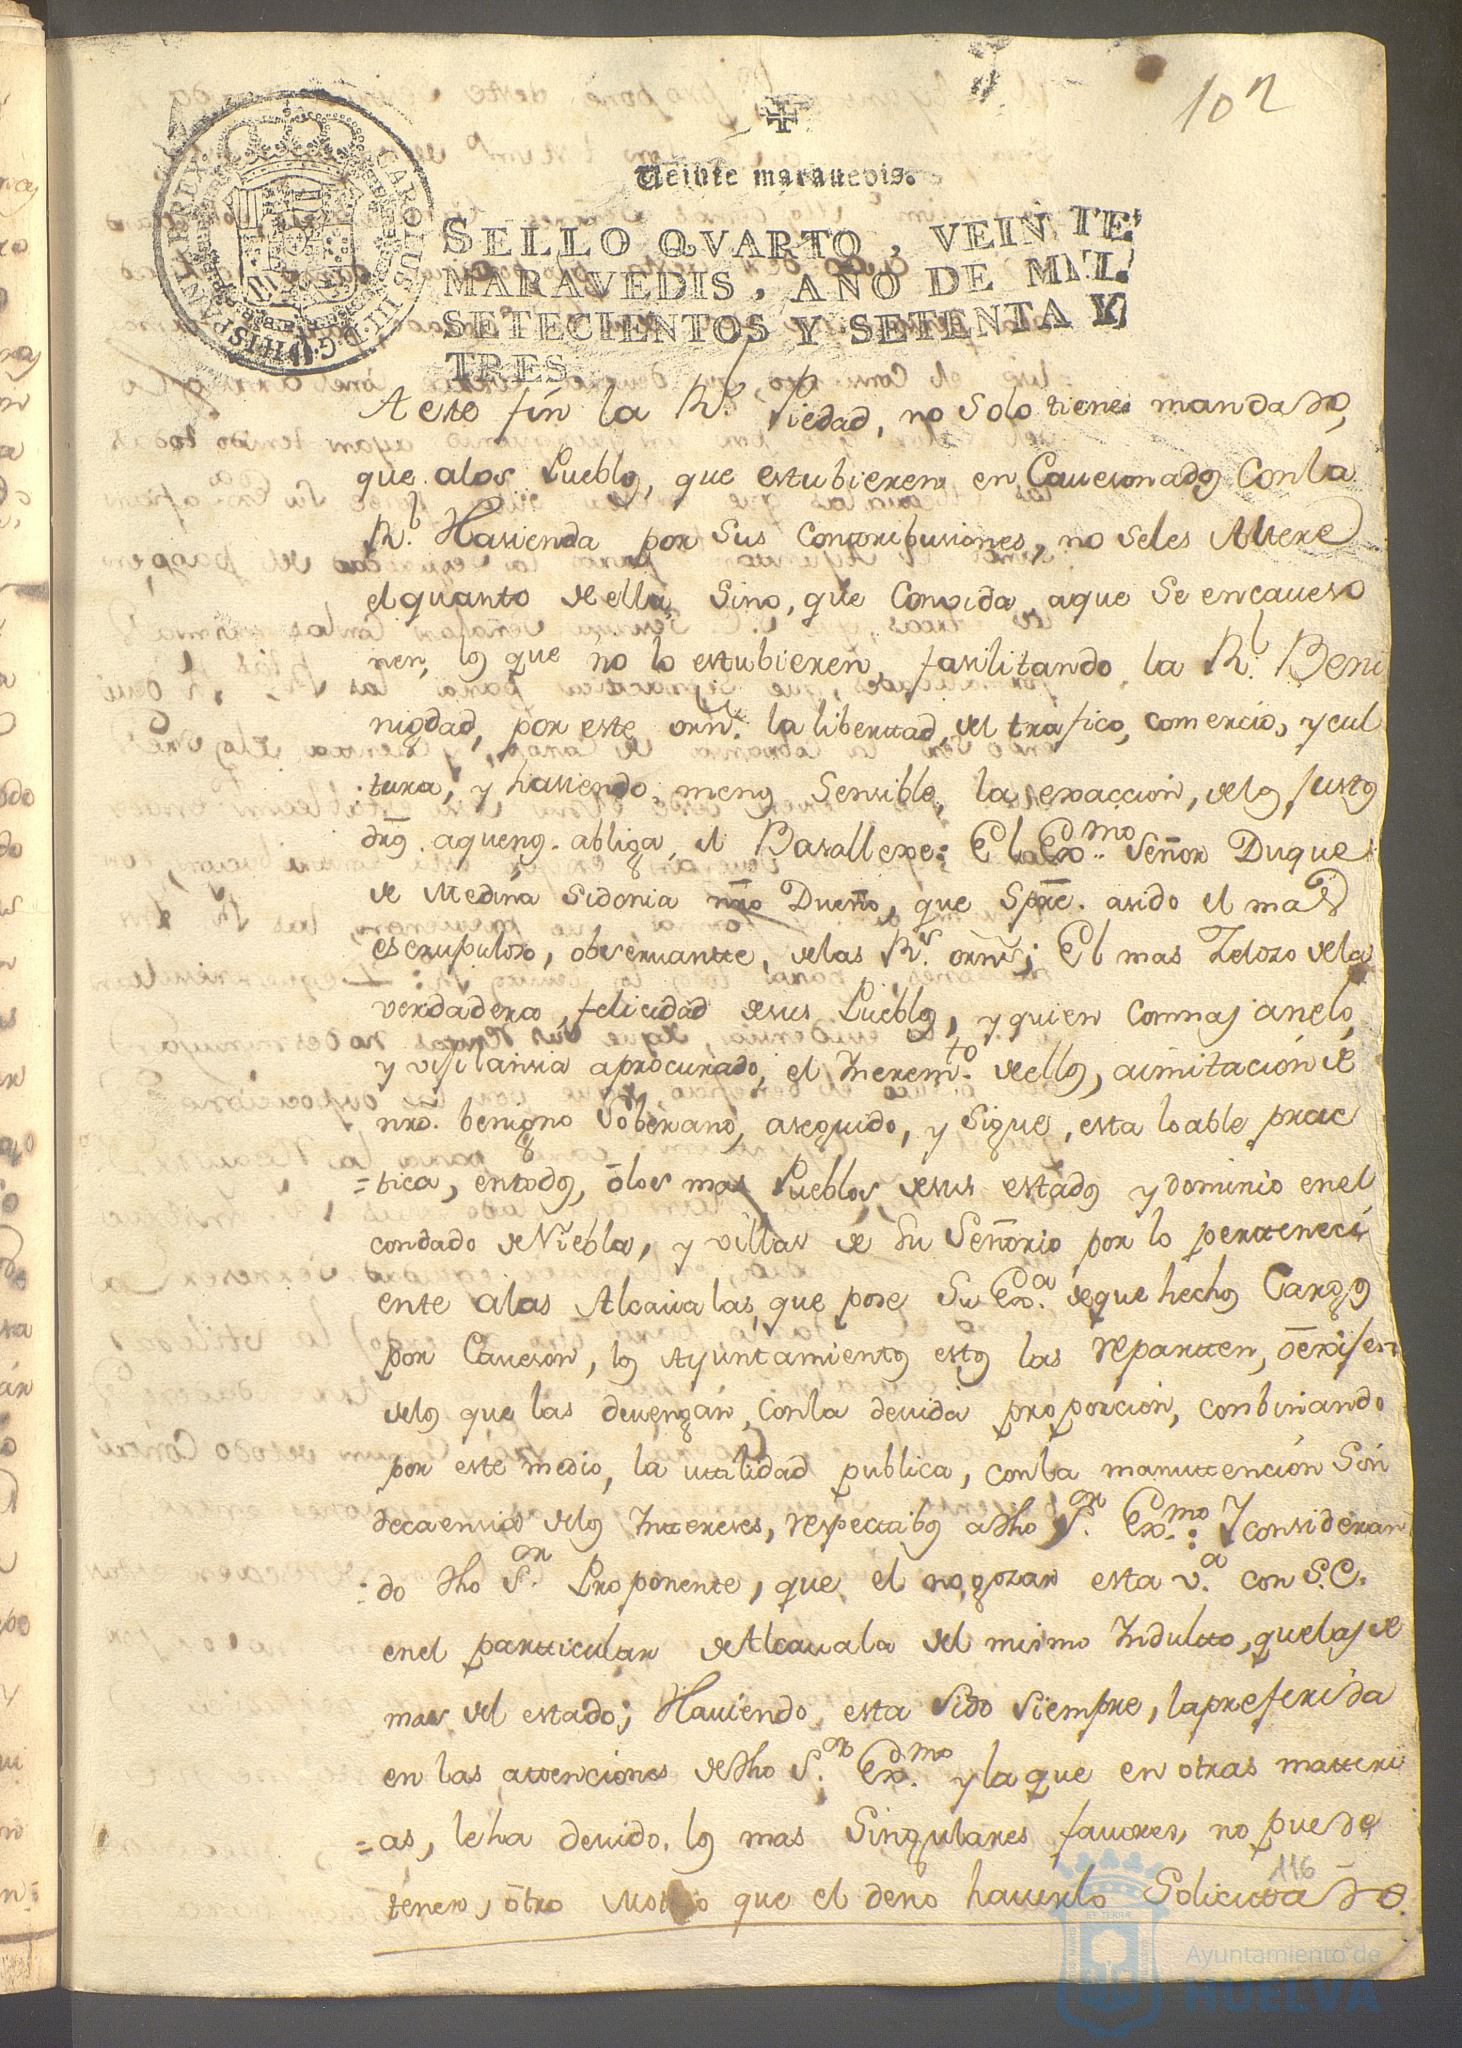 102
Veinte maravedis.
SELLO QVARTO, VEINTE
MARAVEDIS, AÑO DE MIL
SETECIENTOS Y SETENTA Y
TRES.
CAROLUS III D.G. HISPANIAR. REX
A este fin la Rl. Piedad, no solo tiene mandado,
que alos Pueblos, que estubieren en Cauesonados Con la
Rl. Hasienda por sus Contribusiones, no seles Altere
el quanto de ella, sino, que Convida aque se encaueso
nen, los que no lo estubieren, fasilitando la Rl. Beni
nigdad, por este orn. la libertad del trafico, comercio, y cul
tura, y hasiendo menos sensible, la exaccion, delos justos
dros. aquenos. abliga el Basallexe: El Exmo. Señor Duque
de Medina Sidonia nro Dueño, que Spre. asido el mas
escrupuloso, obseruantte, delas Rs. orns; El mas Zelozo dela
verdadera felicidad desus Pueblos, y quien Conmas anelo,
y vijilansia aprocurado, el Incremto. deellos, aimitacion de
nro. benigno Soberano, aseguido, y sigue, esta loable prac
=tica, entodos, ōlos mas Pueblos desus estados y dominio enel
condado de Niebla, y villas de su Señorio por lo pertteneci
ente alas Alcaualas, que pose Su Exa. deque hechos Cargos
por Caueson, los Ayuntamientos estos las repartten, ō exijen
delos que las deuengan, Conla deuida proporcion, combinando
por este medio, la utilidad publica, conla manuttencion Sin
decaensia delos Inttereses, respectabos a dho Sor. Exmo.: Y consideran
:do dho Sor. Proponente, que el no gozar esta va. con S.C.
enel partticular de Alcauala del mismo Indultto, quelas de
mas del estado; Hauiendo esta sido siempre, lapreferida
en las atenciones dedho Sor. Exmo. y la que en otras matteri
=as, leha deuido. los mas Singulares fauores, no puede
tener, ōtro Motibo que el deno hauerlo Solicittado.
116
Ayuntamiento de
HUELVA